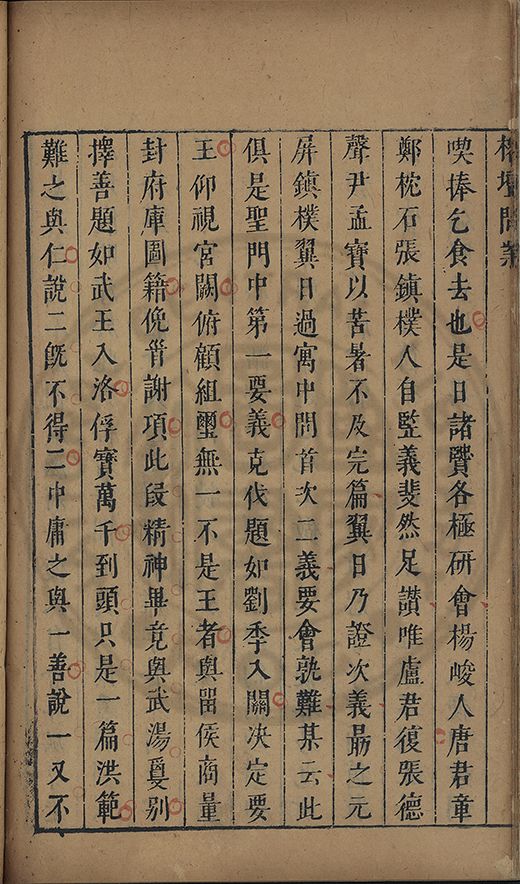 榕壇問業
喫捧乞食去也是日諸賢各極研會楊峻人唐君章
鄭枕石張鎮樸人自監義斐然足讃唯盧君復張德
聲尹孟寶以苦暑不及完篇翼日乃證次義最之元
屏鎮樸翼日過寓中問首次二義要會孰難某云此
俱是聖門中第一要義克伐題如劉季入關决定要
王仰視宮闕俯顧組璽無一不是王者與留侯商量
封府庫圖籍俛首謝項此段精神畢竟與武湯敻別
擇善題如武王入洛俘寶萬千到頭只是一篇洪範
難之與仁說二旣不得二中庸之與一善說一又不